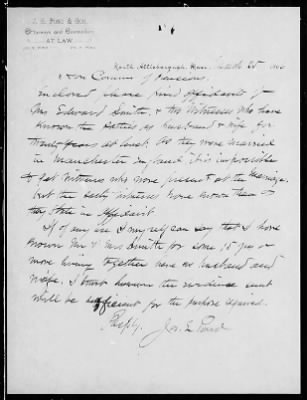 J. E. Pond & Son.
Attorneys and Counsellors
AT LAW
North Attleborough, Mass. March 25
Hon Commr of Pensions.
Inclosed please find affidavits of
Mrs Edward Smith, & two witnesses who have
known the parties as husband & wife for
years at least. As they were married
in Manchester England it is impossible
to get witnesses who were present at the marriage,
but the witnesses have known them as
they state in affidavit.
If of any use I myself can say that I have
known Mr & Mrs Smith for some 15 yrs or
more living together here as husband and
wife. I the evidence sent
will be sufficient for the purpose required.
Resply.
Jas. E. Pond